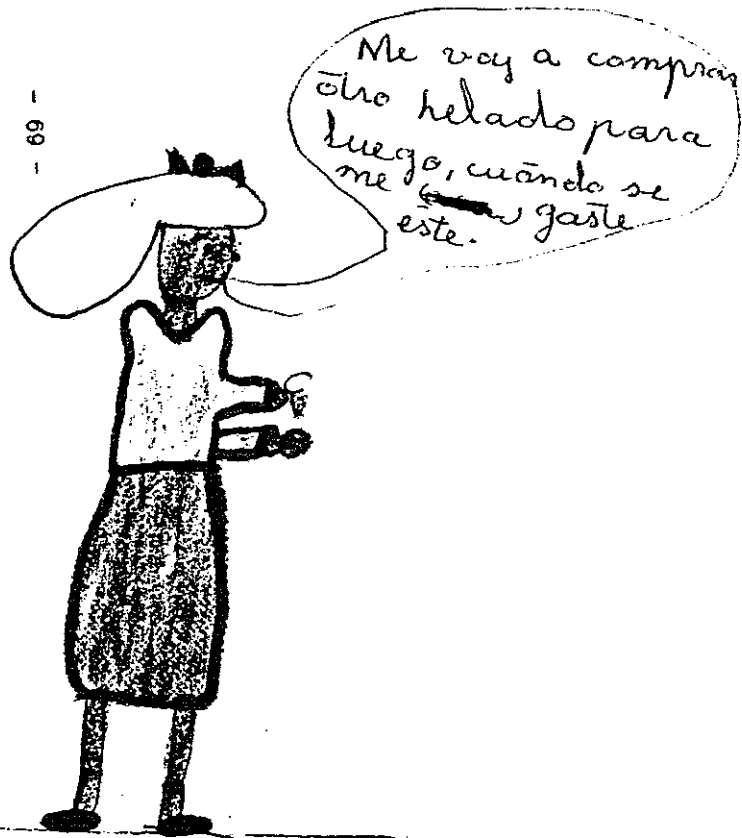 - 69 -
Me voy a comprar
ōtro helado para
luego, cuāndo se
me gaste
ēste.